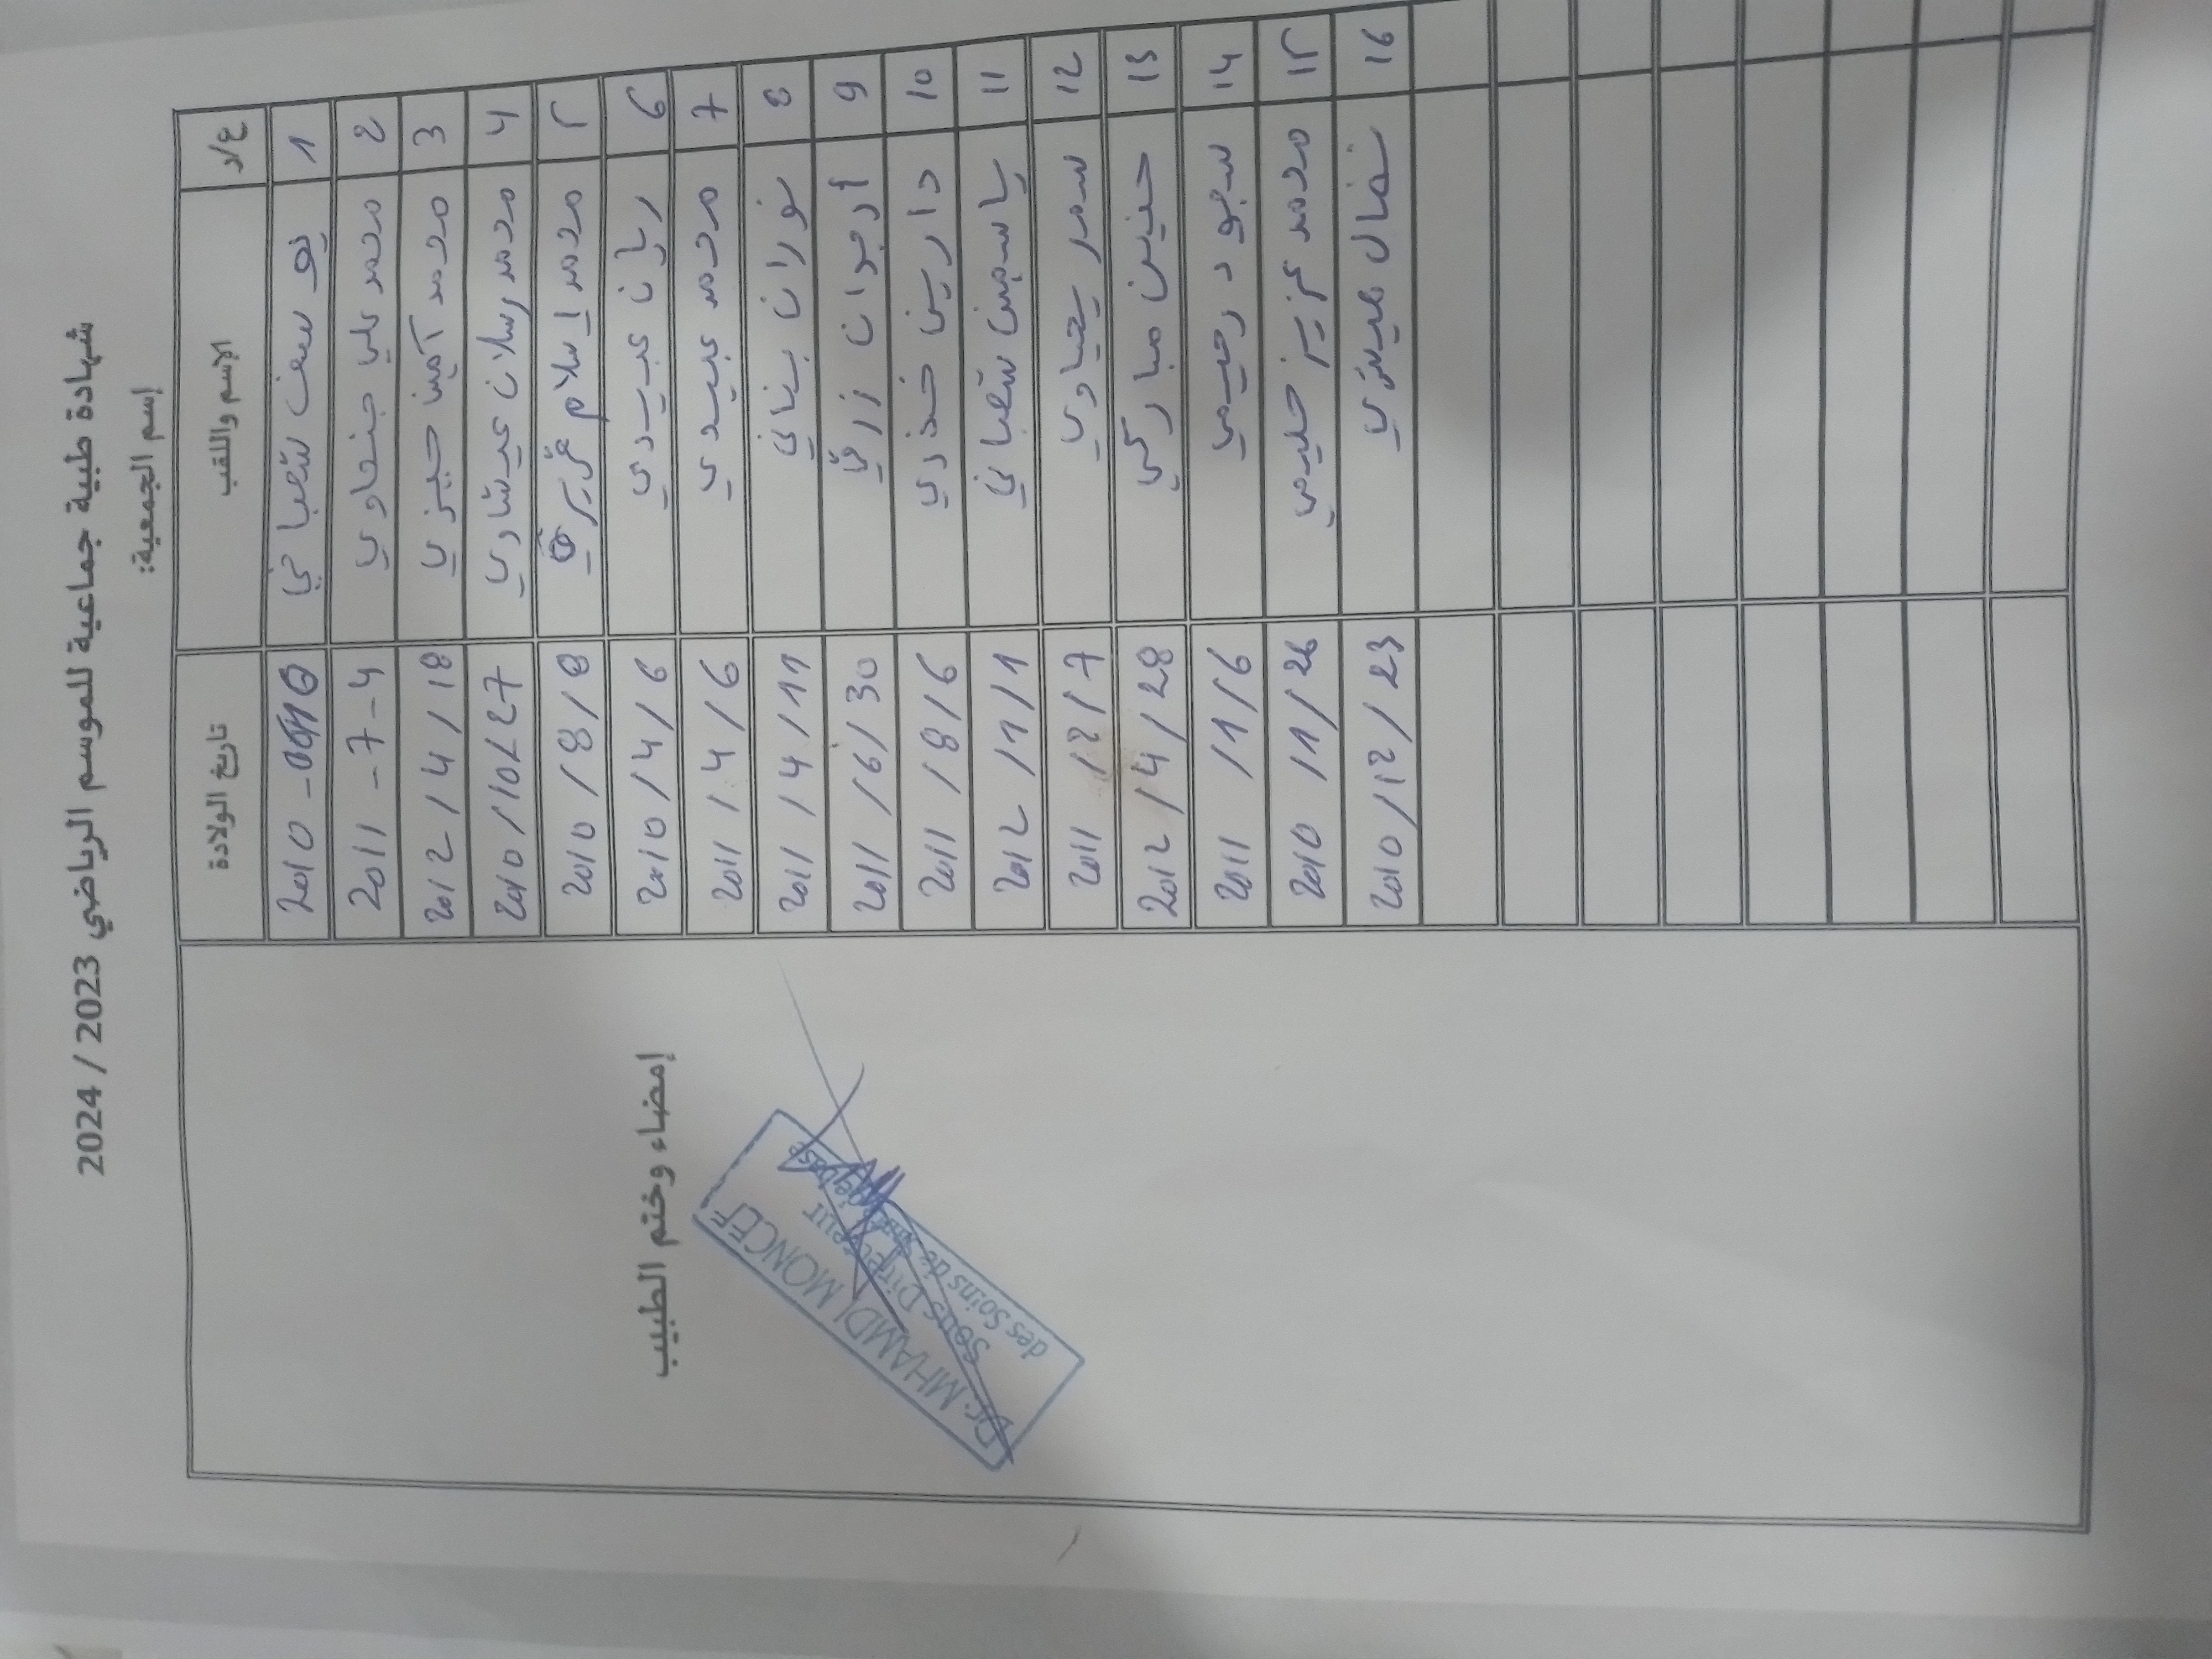 شهادة طبية جماعية للموسم الرياضي 2023 / 2024
إسم الجمعية:
ع/د الاسم واللقب تاريخ الولادة
1 يوسف شعباني 2010 -
2 محمد علي جنحاوي 2011 -7-4
3 محمد أمين حيزي 2012 / 4 / 18
4 محمد رسلان عيشاوي 2010 / 10 / 27
5 محمد إسلام 2010 / 8 / 8
6 ريان عبيدي 2010 / 4 / 6
7 محمد عبيدي 2011 / 4 / 6
8 نوران بناني 2011 / 4 / 11
9 أرجوان زرقي 2011 / 6 / 30
10 دارين خذري 2011 / 8 / 6
11 ياسمين شعباني 2012 / 11 / 1
12 سمر يحياوي 2011 / 12 / 7
13 حنين مباركي 2012 / 4 / 28
14 سجود رحيمي 2011 / 11 / 6
15 محمد عزيز حليمي 2010 / 11 / 26
16 نضال عيشوي 2010 / 12 / 23
إمضاء وختم الطبيب
Dr. MHAMDI MONCEF
Sous Directeur
des Soins de Santé de base